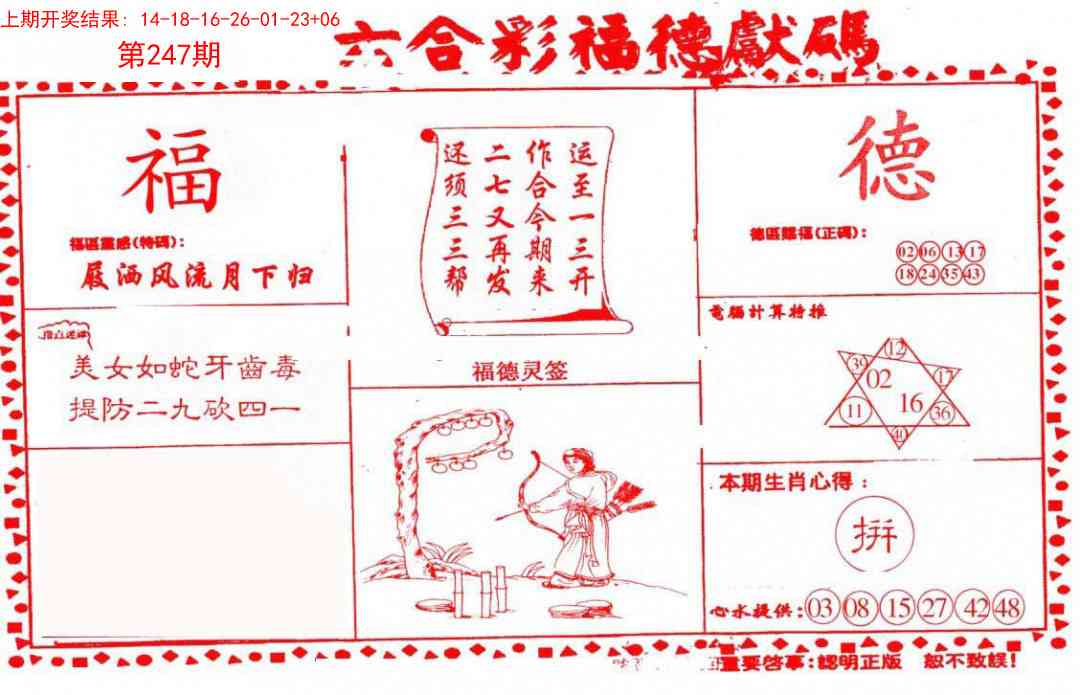 上期开奖结果：14-18-16-26-01-23+06
第247期
六合彩福德獻碼
福
福區靈感(特碼)：
屐洒风流月下归
指点迷津
美女如蛇牙齒毒
提防二九砍四一
运至一三开
作合今期来
二七又再发
还须三三帮
福德灵签
德
德區賜福(正碼)：
02 06 13 17
18 24 35 43
電腦計算特推
12
39 02 17
11 16 36
40
本期生肖心得：
拼
心水提供：03 08 15 27 42 48
重要啓事：認明正版 恕不致誤！